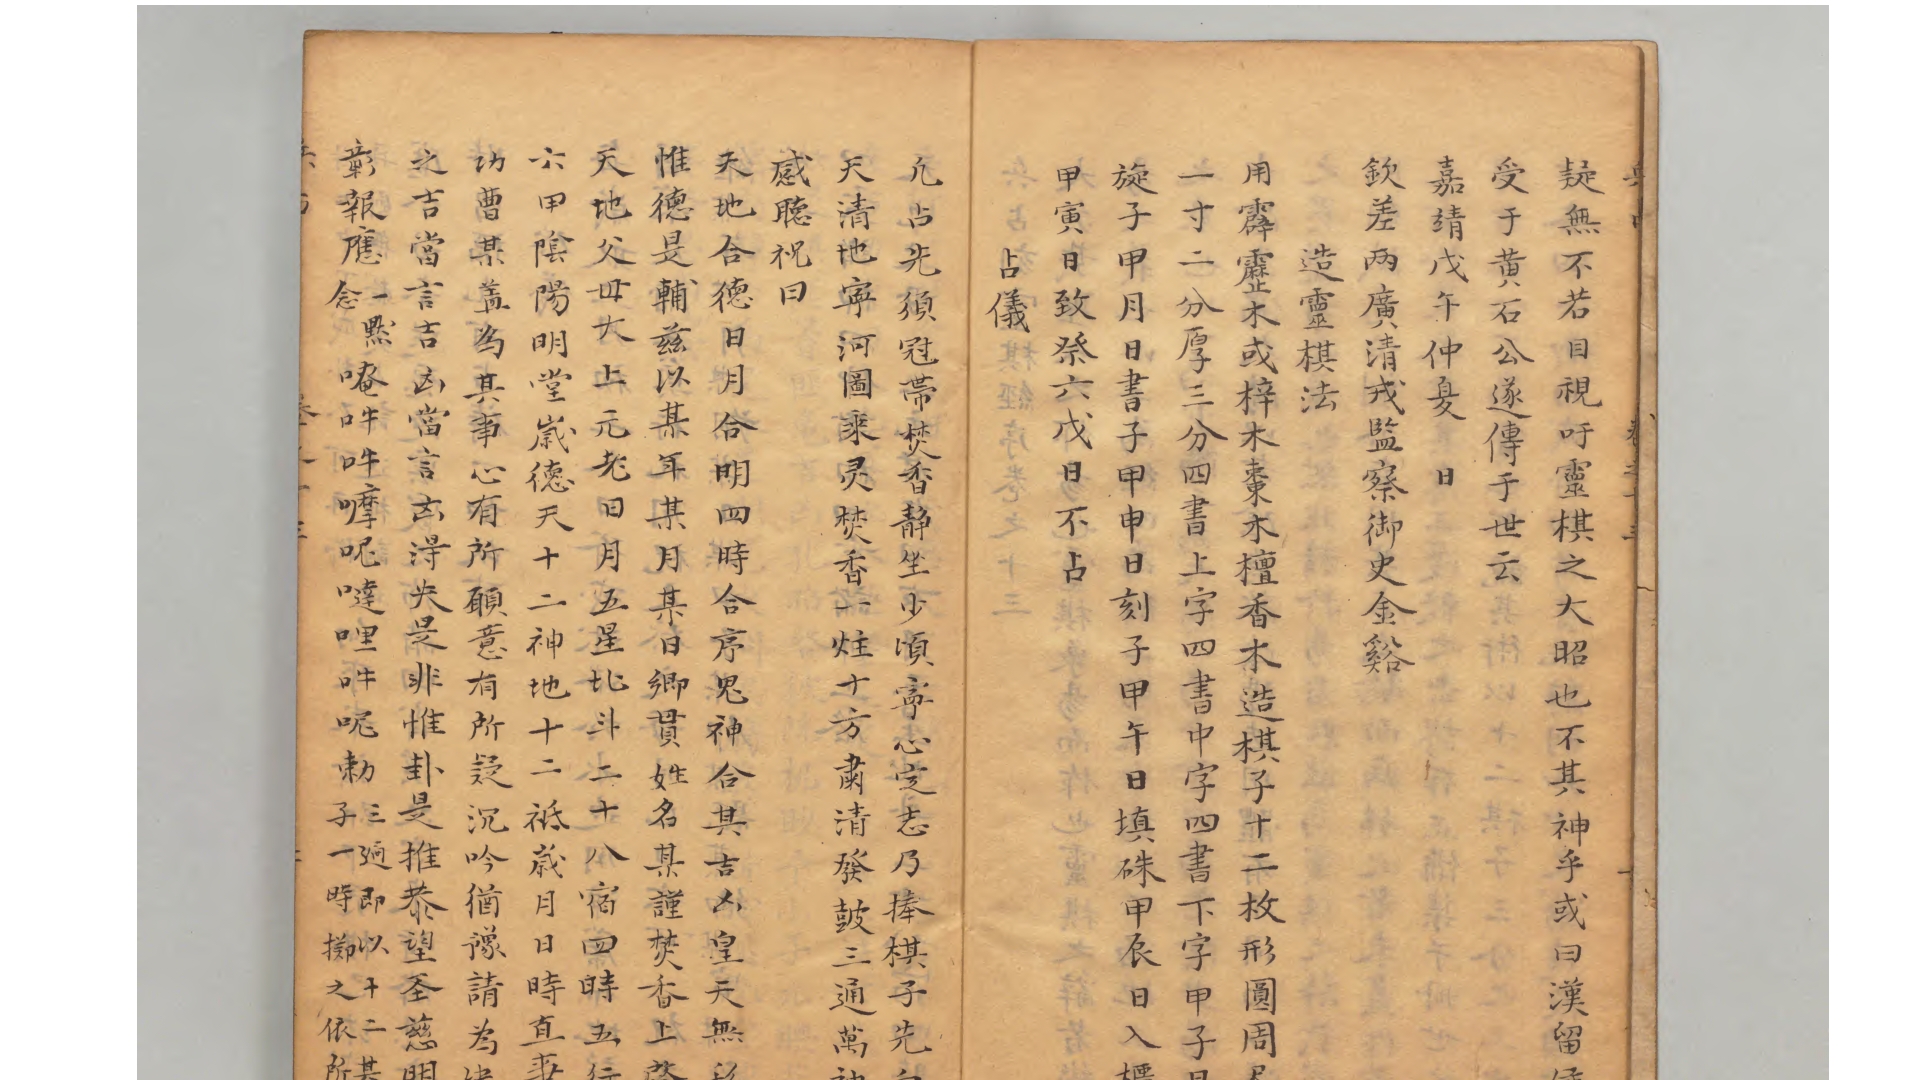 疑無不若目視吁靈棋之大昭也不其神乎或曰漢留
受于黄石公遂傳于世云
嘉靖戊午仲夏 日
欽差两廣清戎監察御史金谿
造靈棋法
用霹靂木或梓木棗木檀香木造棋子十二枚形圓周
一寸二分厚三分四書上字四書中字四書下字甲子
旋子甲月日書子甲申日刻子甲午日填硃甲辰日入
甲寅日致祭六戊日不占
占儀
凢占先須冠帶焚香静坐少頃寧心定志乃捧棋子先
天清地寜河圖秉灵焚香一炷十方肅清發鼓三通萬
感聴祝曰
天地合德日月合明四時合序鬼神合其吉凶皇天無
惟德是輔兹以某年某月某日鄉貫姓名某謹焚香上
天地父母太上元老日月五星北斗二十八宿四時五行
六甲陰陽明堂歲德天十二神地十二祇歲月日時直事
功曹某盖為某事心有所願意有所疑沉吟猶豫請為
之吉當言吉凶當言凶得失是非惟卦是推恭望圣慈明
彰報應一黙念唵吽吽嚤呢噠哩吽呢勅三廽即以十二其子一時擲之依所